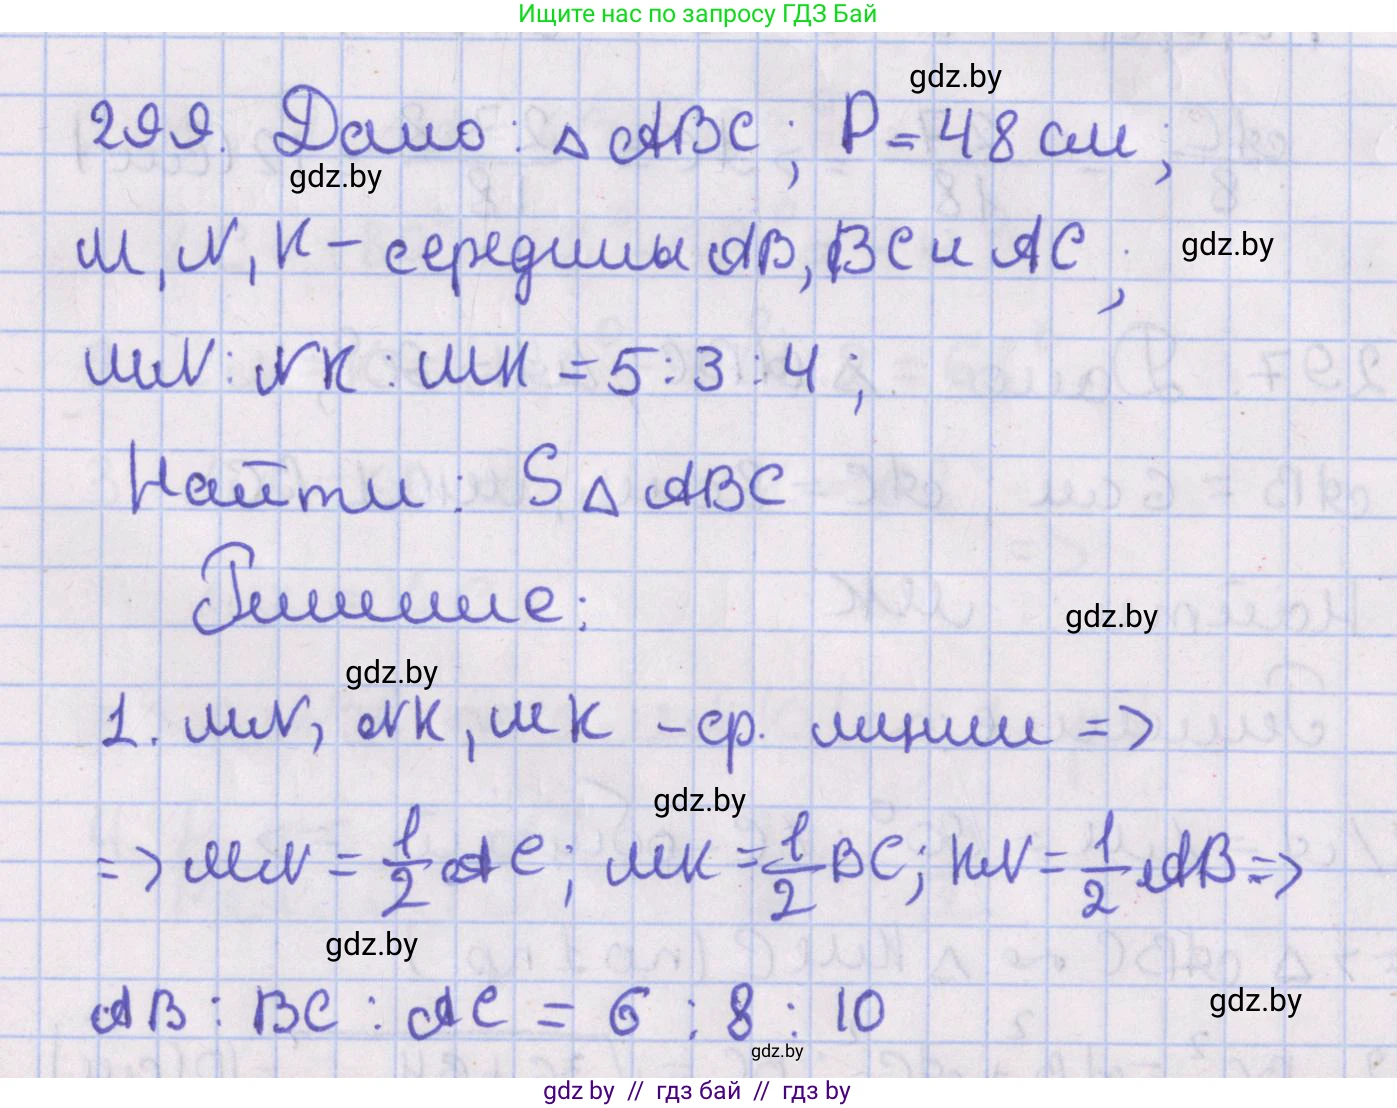 Ищите нас по запросу ГДЗ Бай
gdz.by
299. Дано: △ ABC; P = 48 см;
gdz.by
M, N, K – середины AB, BC и AC;
gdz.by
MN : NK : MK = 5 : 3 : 4;
Найти: S △ ABC
Решение:
gdz.by
gdz.by
1. MN, NK, MK – ср. линии =>
gdz.by
=> MN = 1/2 AC; MK = 1/2 BC; KN = 1/2 AB =>
gdz.by
AB : BC : AC = 6 : 8 : 10
gdz.by
gdz.by
gdz by // гдз бай // гдз by